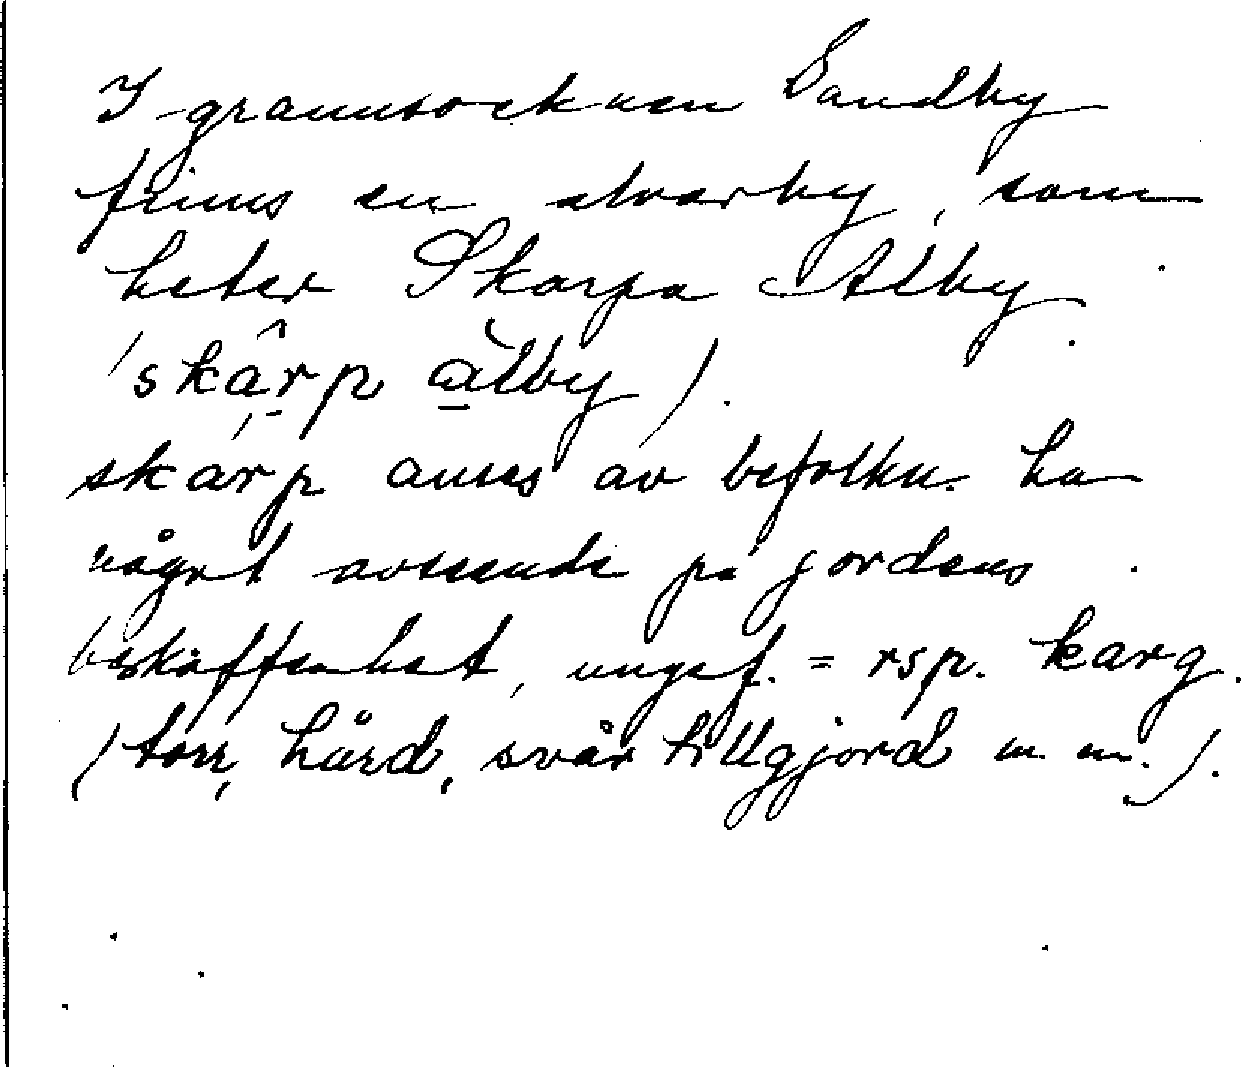 I grannsocknen Sandby
finns en alvarby, som
heter Skarpa Alby
(skârp àlby).
skarp anses av befolkn. ha
något avseende på jordens
beskaffenhet, ungef. = rsp. karg.
(torr, hård, svår tillgjord m m.).